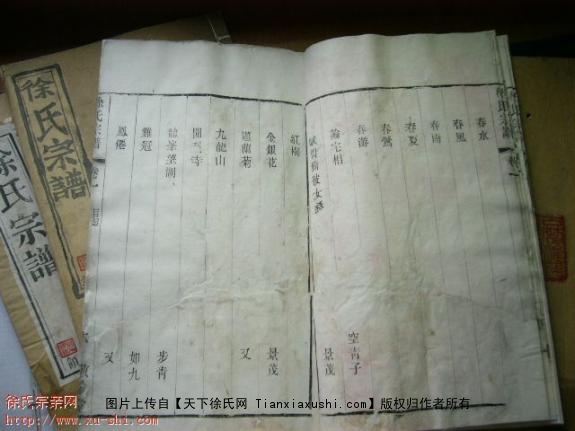 徐氏宗譜
徐氏宗譜
春水
春風
春雨
春夏
春鶯
春游
論宅相
空青子
景茂
紅梅
金銀花
景茂
題龍菊
又
九龍山
開元寺
步青
雞冠
如九
鳳僊
又
徐氏宗譜
卷一
徐氏宗亲网
http://www.xu-shi.com
图片上传自【天下徐氏网 Tianxiaxushi.com】版权归作者所有